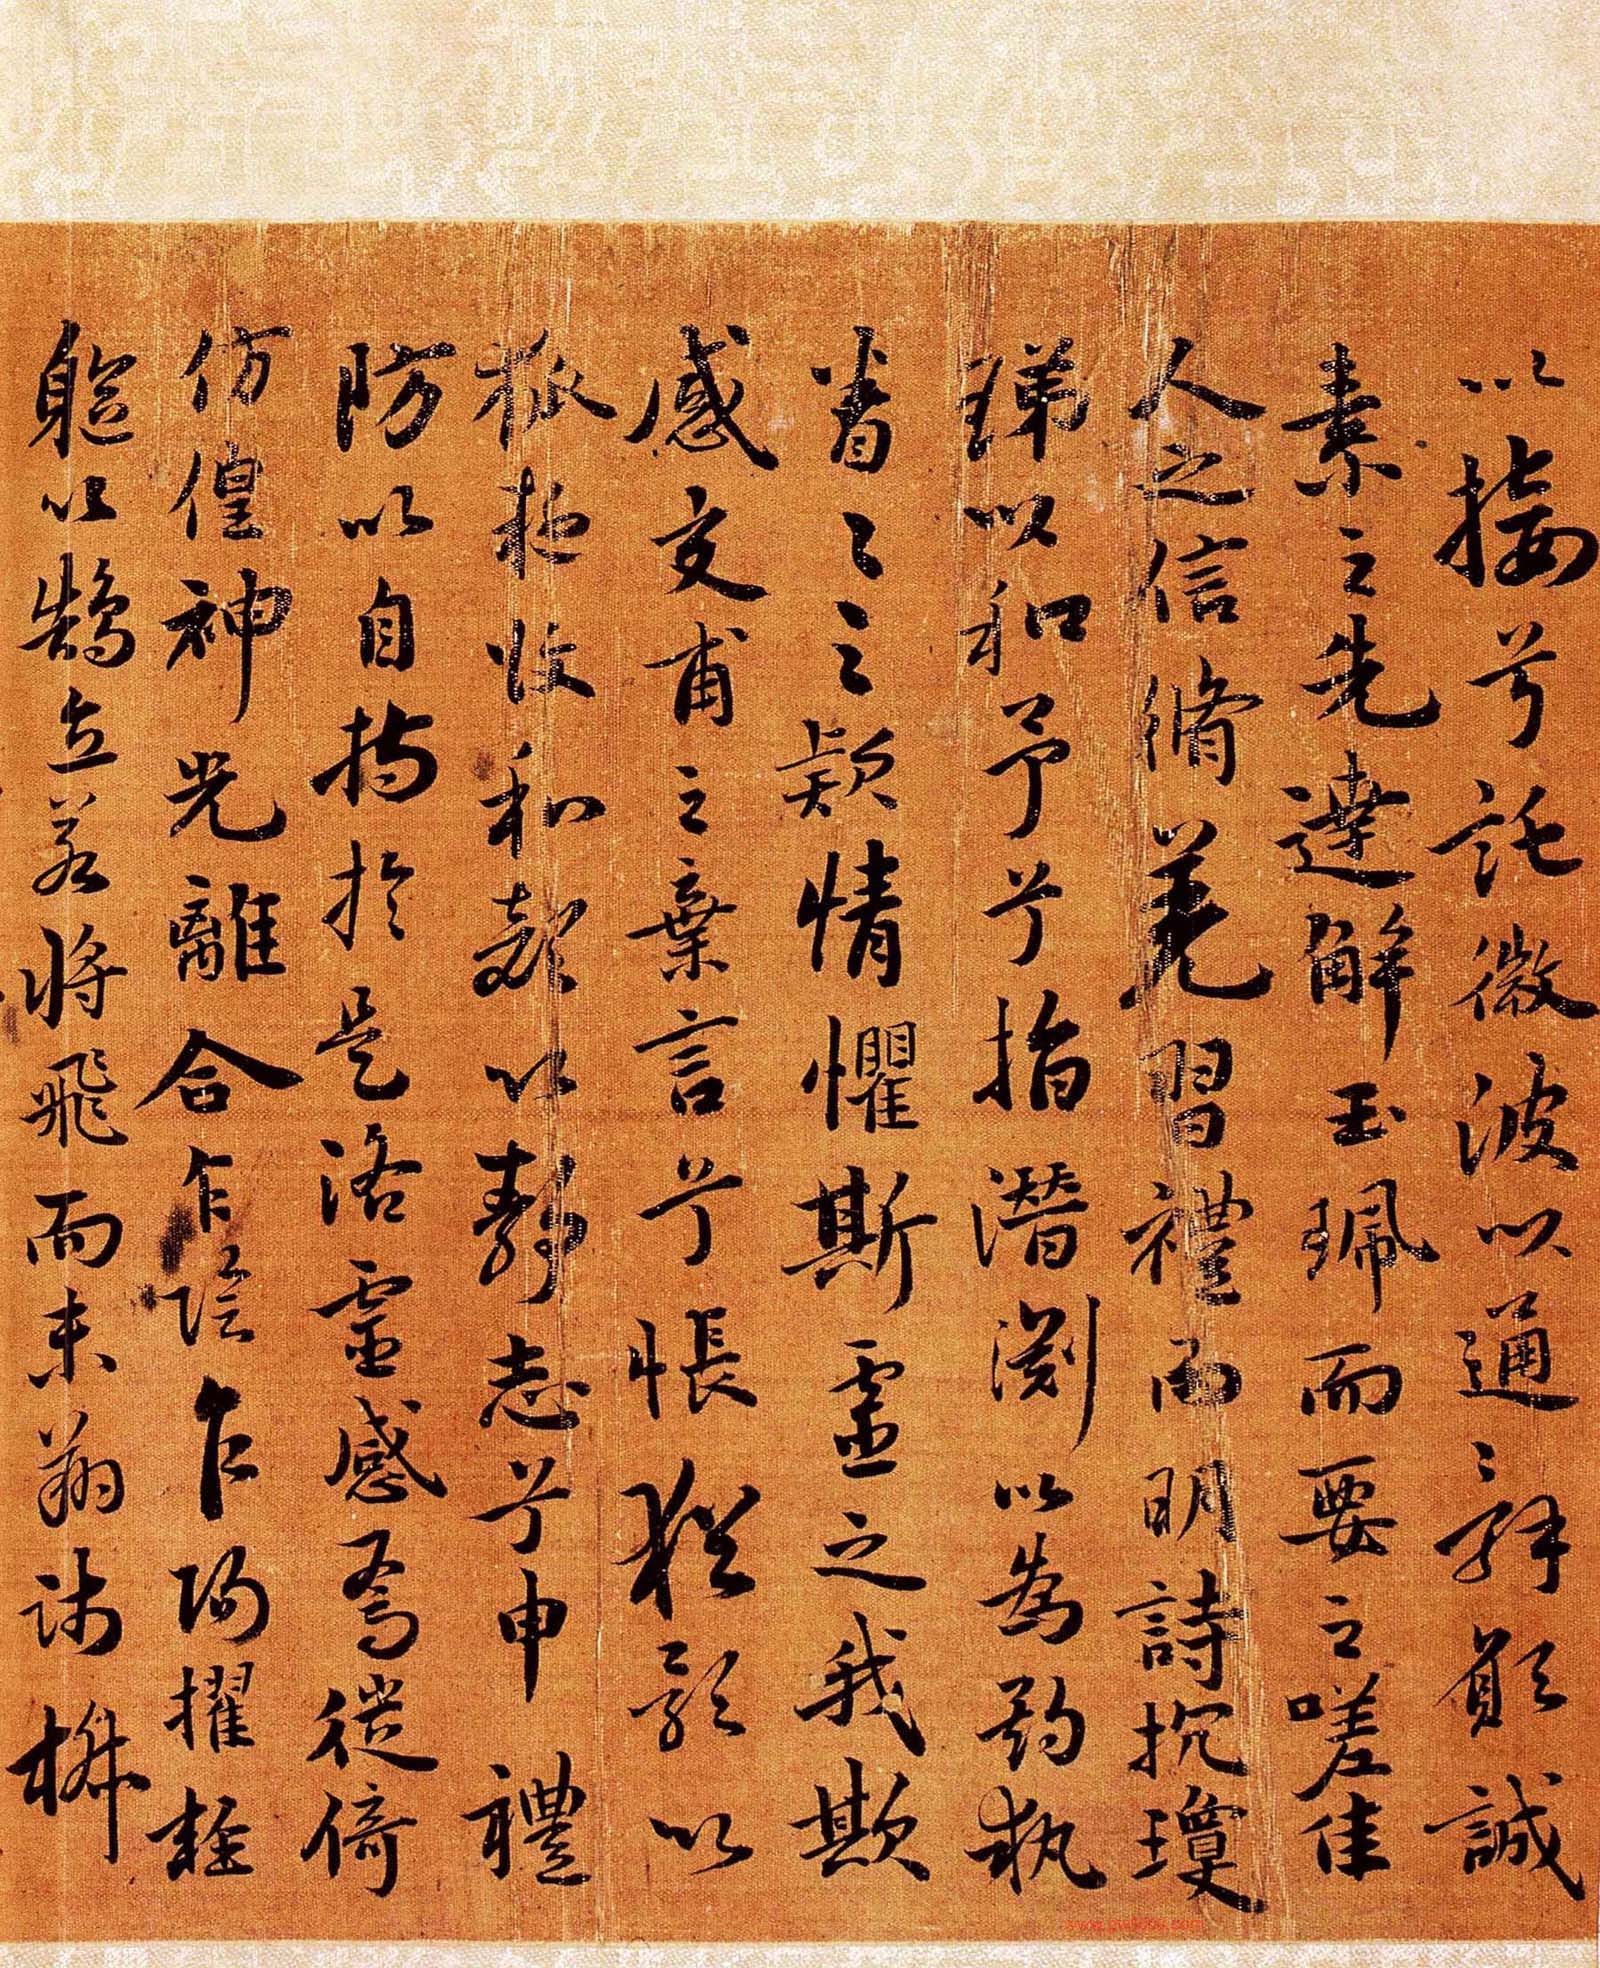 以接兮託微波以通辭願誠
素之先達解玉珮而要之嗟佳
人之信脩羌習禮而明詩抗瓊
珶以和予兮指潛淵以為期執
眷〻之款情懼斯靈之我欺
感交甫之棄言兮悵猶豫以
狐疑收和顏以靜志兮申禮
防以自持於是洛靈感焉徙倚
仿偟神光離合乍陰乍陽擢輕
軀以鵠立若將飛而未翔踐椒